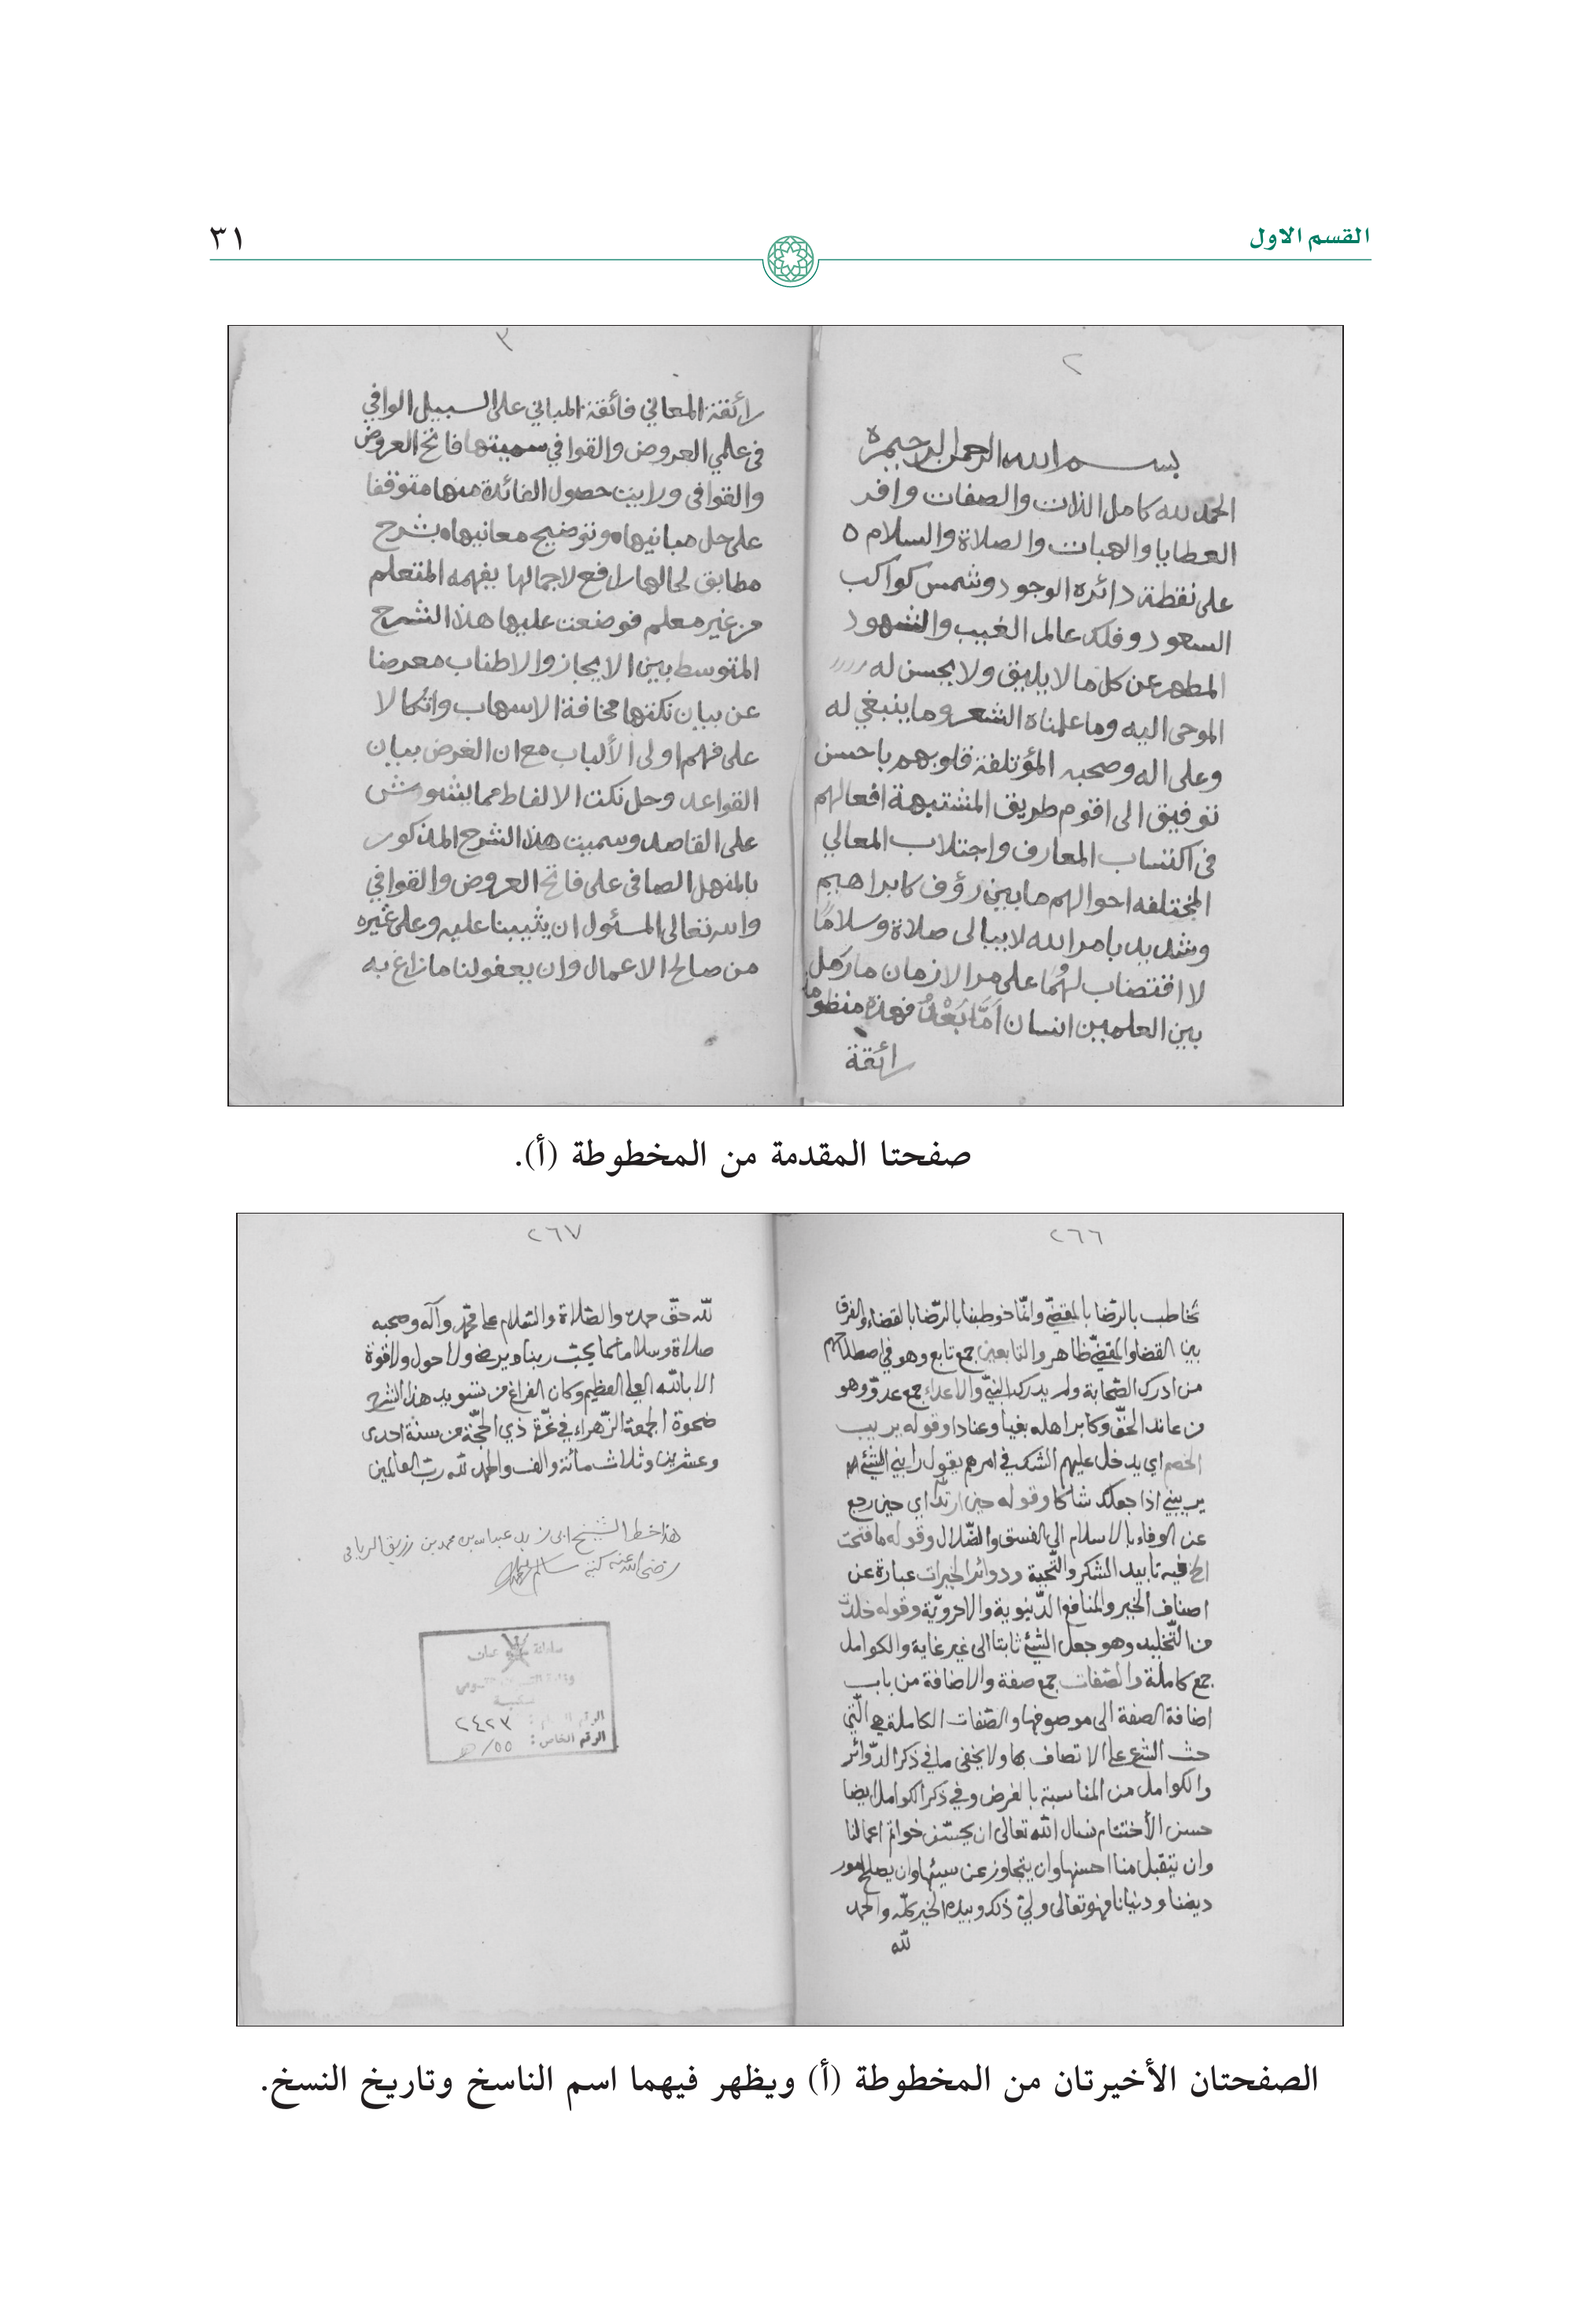 القسم الاول
٣١
٢
بسم الله الرحمن الرحيم ه
الحمد لله كامل الذات والصفات وافر
العطايا والهبات والصلاة والسلام ه
على نقطة دائرة الوجود وشمس كواكب
السعود وفلك عالم الغيب والشهود
المطهر عن كل ما لا يليق ولا يحسن له
الموحى اليه وما علمناه الشعر وما ينبغي له
وعلى اله وصحبه المؤتلفة قلوبهم باحسن
توفيق الى اقوم طريق المشتبهة افعالهم
فى اكتساب المعارف واجتلاب المعالي
المختلفه احوالهم ما بين رؤف كابراهيم
وشديد بامر الله لا يبالى صلاة وسلامًا
لا اقتضاب لهُمَا على مر الازمان ما رمل
بين العلمين انسان اَمَّا بَعْدُ فهذه منظومة
رائقة
٣
رائقة المعاني فائقة المباني على السبيل الوافي
فى علمي العروض والقوافي سميتها فاتح العروض
والقوافى ورايت حصول الفائدة منها متوقفا
على حل مبانيها وتوضيح معانيها بشرح
مطابق لحالها رافع لاجمالها يفهمه المتعلم
من غير معلم فوضعت عليها هذا الشرح
المتوسط بين الايجاز والاطناب معرضا
عن بيان نكتها مخافة الاسهاب واتكالا
على فهم اولى الألباب مع ان الغرض بيان
القواعد وحل نكت الالفاظ مما يشوش
على القاصد وسميت هذا الشرح المذكور
بالمنهل الصافى على فاتح العروض والقوافي
والله تعالى المسئول ان يثيبنا عليه وعلى غيره
من صالح الاعمال وان يعفو لنا ما زاغ به
صفحتا المقدمة من المخطوطة (أ).
٢٦٦
نخاطب بالرّضا بالمقضيّ وانّما خوطبنا بالرّضا بالقضاء والفرق
بين القضا والمقضيّ ظاهر والتابعين جمع تابع وهو في اصطلاحهم
من ادرك الصّحابة ولم يدرك النبيّ والاعداء جمع عدوّ وهو
من عاند الحقّ وكابر اهله بغيا وعنادا وقوله بريب
الخصم اي يدخل عليهم الشك في امرهم يقول رابني الشئ
يريبني اذا جعلك شاكا وقوله حين ارتدّ اي حين رجع
عن الوفاء بالاسلام الي الفسق والضّلال وقوله ما فتحت
الخ فيه تابيد الشكر والتّحية ودوائر الخيرات عبارة عن
اصناف الخير والمنافع الدّنيوية والاخرويّة وقوله خلدت
من التّخليد وهو جعل الشئ ثابتا الى غير غاية والكوامل
جمع كاملة والصّفات جمع صفة والاضافة من باب
اضافة الصفة الى موصوفها والصّفات الكاملة هي الّتي
حث الشرع على الاتصاف بها ولا يخفى ما في ذكر الدّوائر
والكوامل من المناسبة بالغرض وفي ذكر الكوامل ايضا
حسن الأختتام نسال الله تعالى ان يحسّن خواتم اعمالنا
وان يتقبل منا احسنها وان يتجاوز عن سيئها وان يصلح امور
ديننا ودنيانا فهو تعالى وليّ ذلك وبيده الخير كلّه والحمد
لله
٢٦٧
لله حقّ حمده والصّلاة والسّلام على محمّد وآله وصحبه
صلاة وسلاما كما يحبّ ربنا ويرضى ولا حول ولا قوة
الا بالله العلي العظيم وكان الفراغ من تسويد هذا الشرح
ضحوة الجمعة الزّهراء في غرّة ذي الحجّة من سنة احدى
وعشرين وثلاث مائة والف والحمد لله ربّ العالمين
هذا خط الشيخ ابي زيد عبدالله بن محمد بن رزيق الريامي
رضي الله عنه كتبه سالم
سلطنة عمان
الرقم العام : ٢٤٢٣
الرقم الخاص : ٥٥/هـ
الصفحتان الأخيرتان من المخطوطة (أ) ويظهر فيهما اسم الناسخ وتاريخ النسخ.